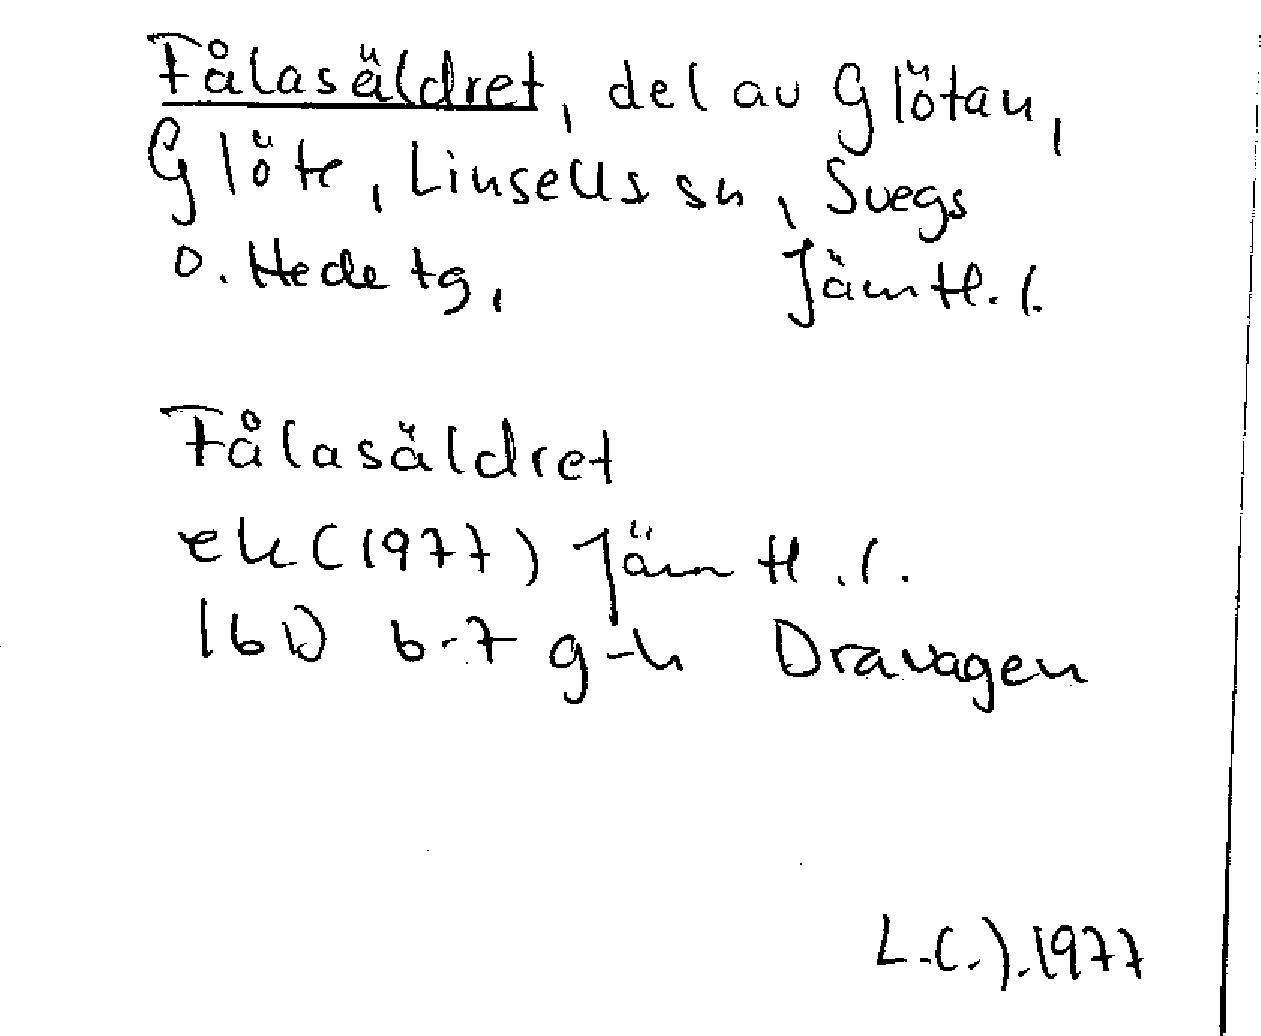 Fålasäldret, del av Glötan,
Glöte, Linsells sn, Svegs
o. Hede tg, Jämtl. l.
Fålasäldret
ek (1977) Jämtl. l.
16D 6-7 g-h Dravagen
L.C.J. 1977